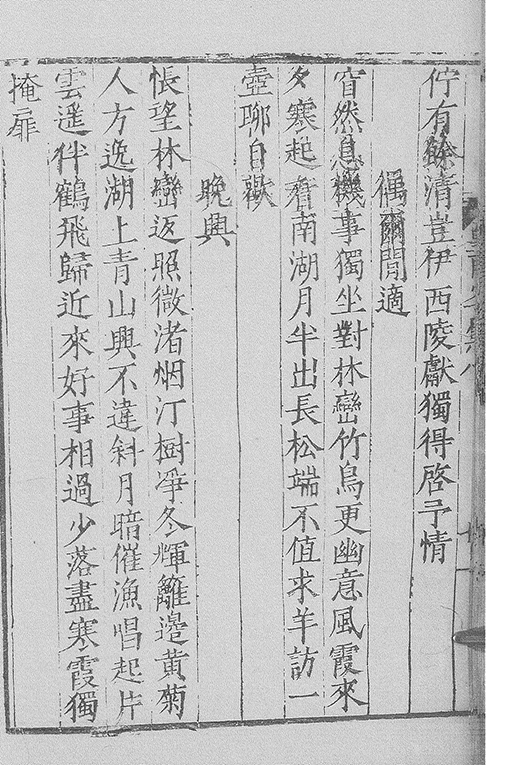 佇有餘清豈伊西陵獻獨得啓予情
偶爾閒適
窅然息機事獨坐對林巒竹鳥更幽意風霞來
夕寒起看南湖月半出長松端不值求羊訪一
壺聊自歡
晚興
悵望林巒返照微渚烟汀樹淨冬輝籬邊黄菊
人方逸湖上青山興不違斜月暗催漁唱起片
雲遥伴鶴飛歸近來好事相過少落盡寒霞獨
掩扉